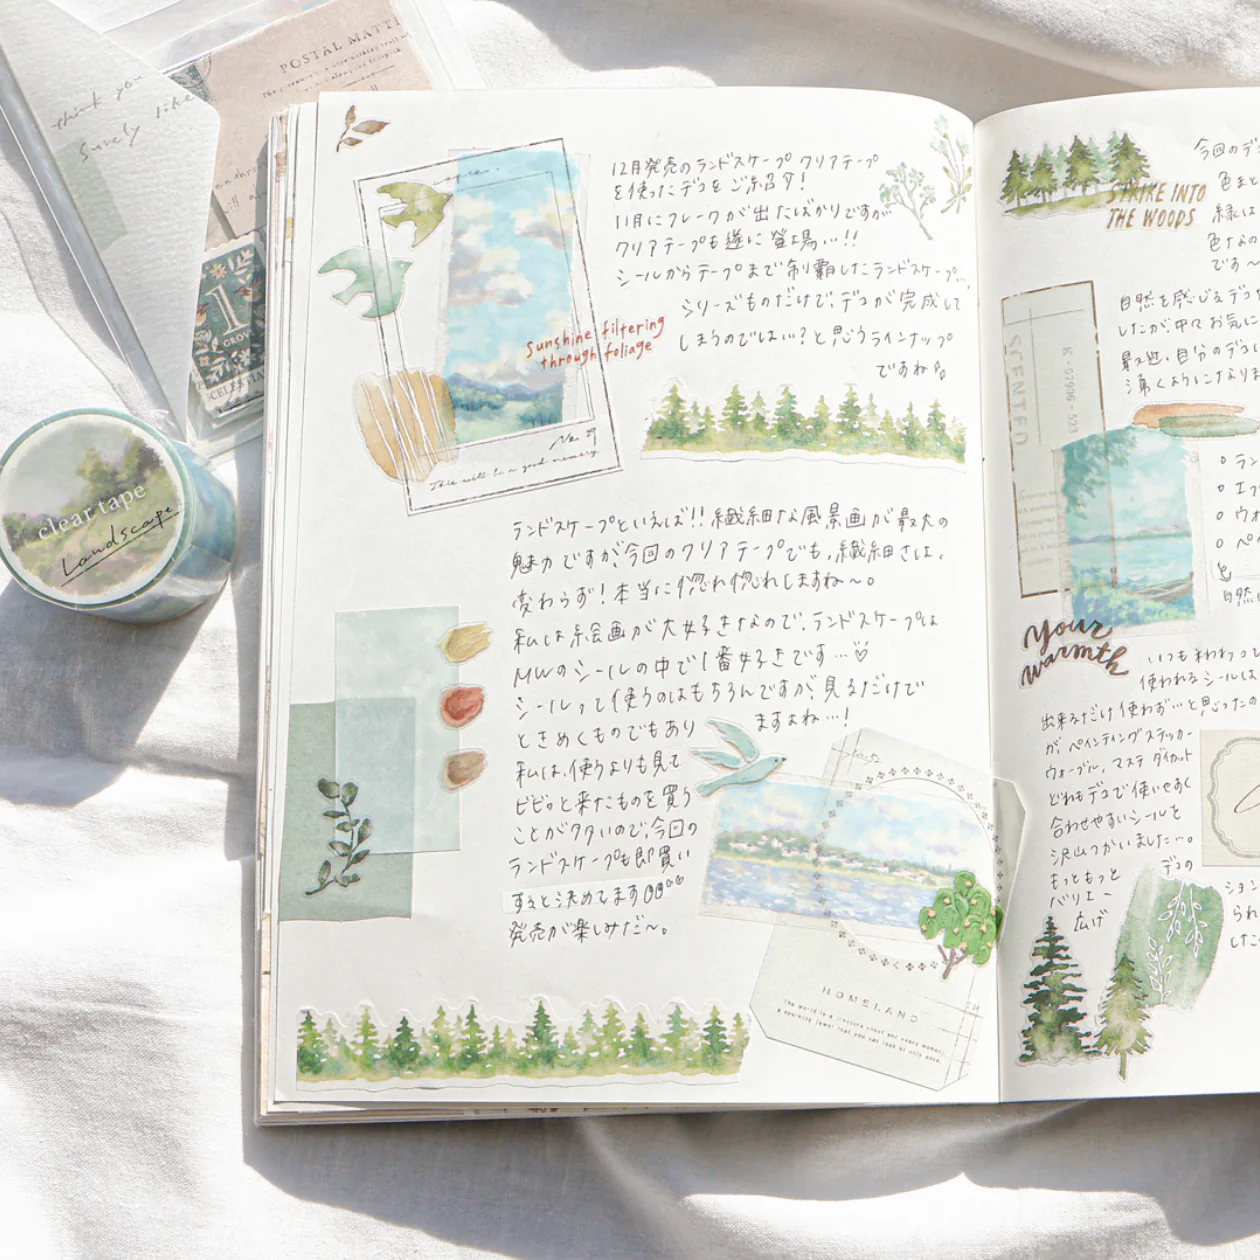 POSTAL MATT
think you
surely like
1
GROW
CELESTIA
clear tape
Landscape
12月発売のランドスケープ クリアテープ
を使ったデコをご紹介!
11月にフレークが出たばかりですが
クリアテープも遂に登場…!!
シールからテープまで制覇したランドスケープ…
シリーズものだけで、デコが完成して
しまうのでは…?と思うラインナップ
ですね
Sunshine filtering
through foliage
No. 29
This will be a good memory.
ランドスケープといえば!!繊細な風景画が最大の
魅力ですが、今回のクリアテープでも、繊細さは、
変わらず!本当に惚れ惚れしますね〜。
私は絵画が大好きなので、ランドスケープは
MWのシールの中で1番好きです…♡
シールって使うのはもちろんですが、見るだけで
ときめくものでもあり
ますよね…!
私は、使うよりも見て
ビビッと来たものを買う
ことが多いので、今回の
ランドスケープも即買い
すると決めてます
発売が楽しみだ〜。
HOMELAND
The world is a treasure chest and every moment,
a sparkling jewel that you can look at only once.
STRIKE INTO
THE WOODS
今回のデコ
色まと
緑は
色なの
です〜
自然を感じるデコ
したが、中々お気に
最近、自分のデコ
湧くようになりま
SCENTED
K-07906-527
ラン
エフ
ウォ
ペイ
と
自然
Your
warmth
いつもわわって
使われるシールは
出来るだけ使わず…と思ったの
が、ペインティングステッカー
ウォーブル、マステ ダイカット
どれもデコで使いやすく
合わせやすいシールを
沢山つかいました…。
もっともっと
デコの
バリエー
ション
広げ
られ
した